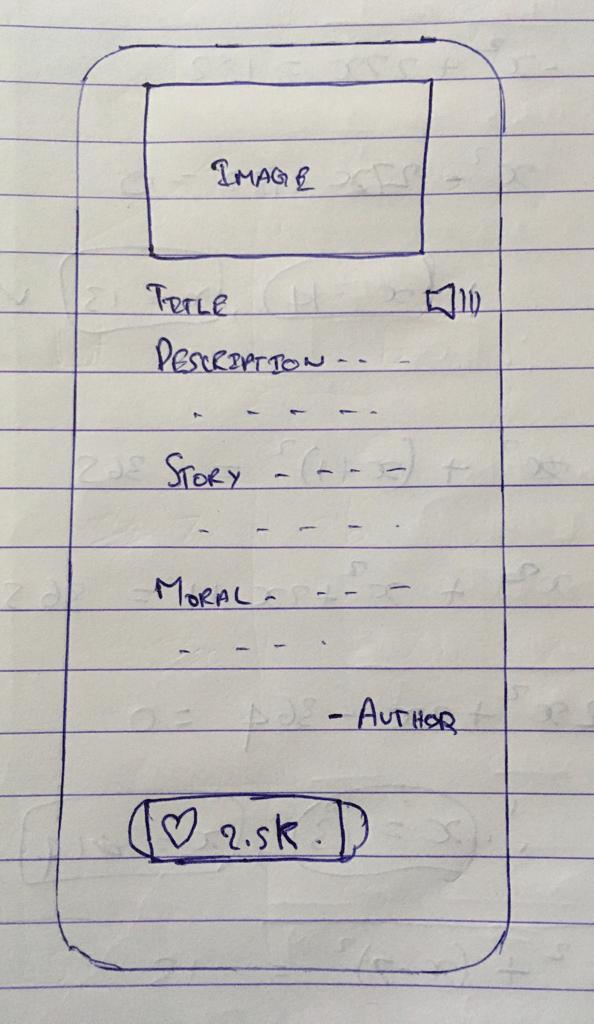 IMAGE
TITLE
DESCRIPTION -- -
STORY - - - -
MORAL - - - -
- AUTHOR
♡ 2.5K.